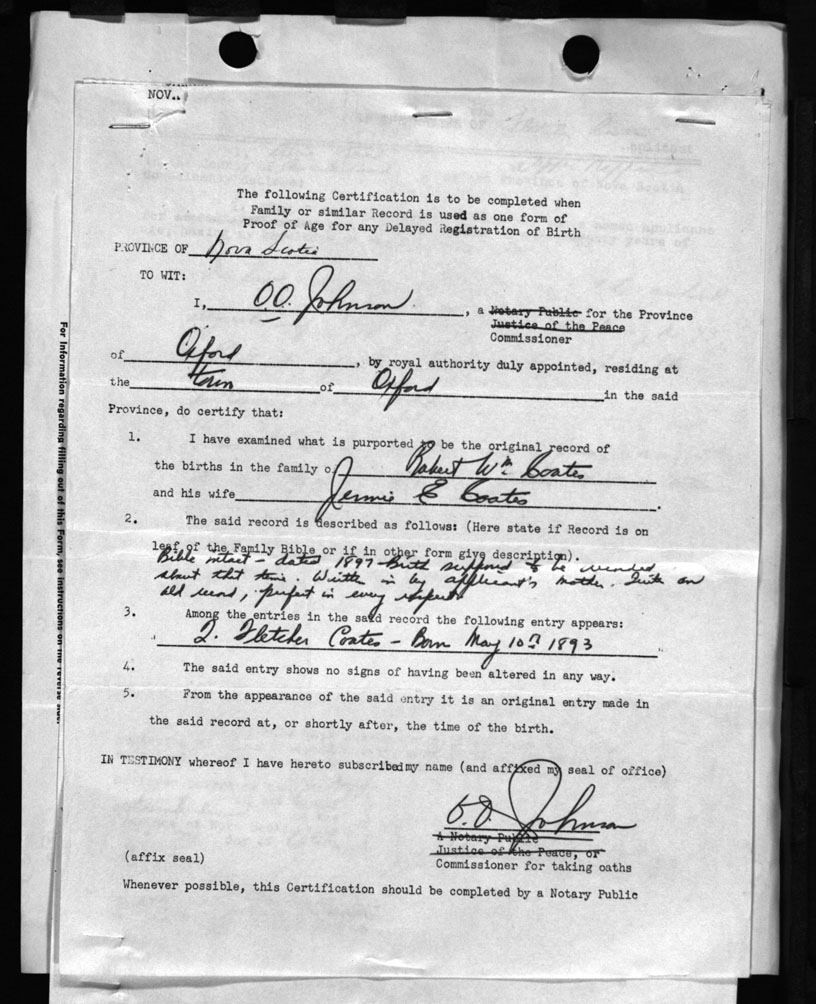 NOV.
The following Certification is to be completed when
Family or similar Record is used as one form of
Proof of Age for any Delayed Registration of Birth
PROVINCE OF Nova Scotia
TO WIT:
I, O.O. Johnson, a Notary Public for the Province
Justice of the Peace
Commissioner
of Oxford, by royal authority duly appointed, residing at
the Town of Oxford in the said
Province, do certify that:
1. I have examined what is purported to be the original record of
the births in the family o Robert Wm Coates
and his wife Jennie E Coates.
2. The said record is described as follows: (Here state if Record is on
leaf of the Family Bible or if in other form give description).
Bible intact - dated 1897 - Birth supposed to be recorded
about that time. Written in by applicant's mother. Quite an
old record, perfect in every respect
3. Among the entries in the said record the following entry appears:
" J. Fletcher Coates - Born May 10th 1893 "
4. The said entry shows no signs of having been altered in any way.
5. From the appearance of the said entry it is an original entry made in
the said record at, or shortly after, the time of the birth.
IN TESTIMONY whereof I have hereto subscribed my name (and affixed my seal of office)
O.O. Johnson
A Notary Public
Justice of the Peace, or
(affix seal) Commissioner for taking oaths
Whenever possible, this Certification should be completed by a Notary Public
For information regarding filling out of this Form, see instructions on the reverse